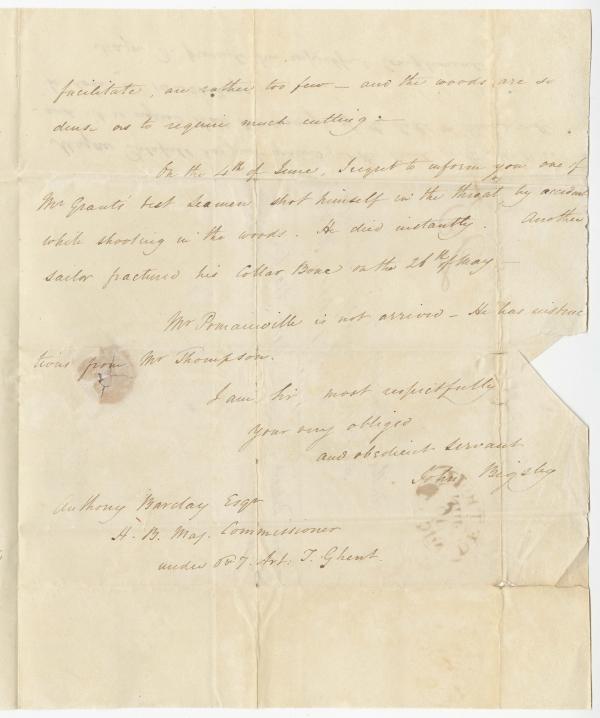 facilitate, are rather too few — and the woods are so
dense as to require much cutting. —
On the 4th of June, I regret to inform you one of
Mr Grants' best seamen shot himself in the throat by accident
while shooting in the woods. He died instantly. Another
sailor fractured his Collar Bone on the 26th of May —
Mr Pomainville is not arrived — He has instruc
tions from Mr Thompson.
I am Sir, most respectfully
your very obliged
and obedient servant
John Bigsby
Anthony Barclay Esqr
H. B. Maj. Commissioner
under 6 & 7. Art: T. Ghent.